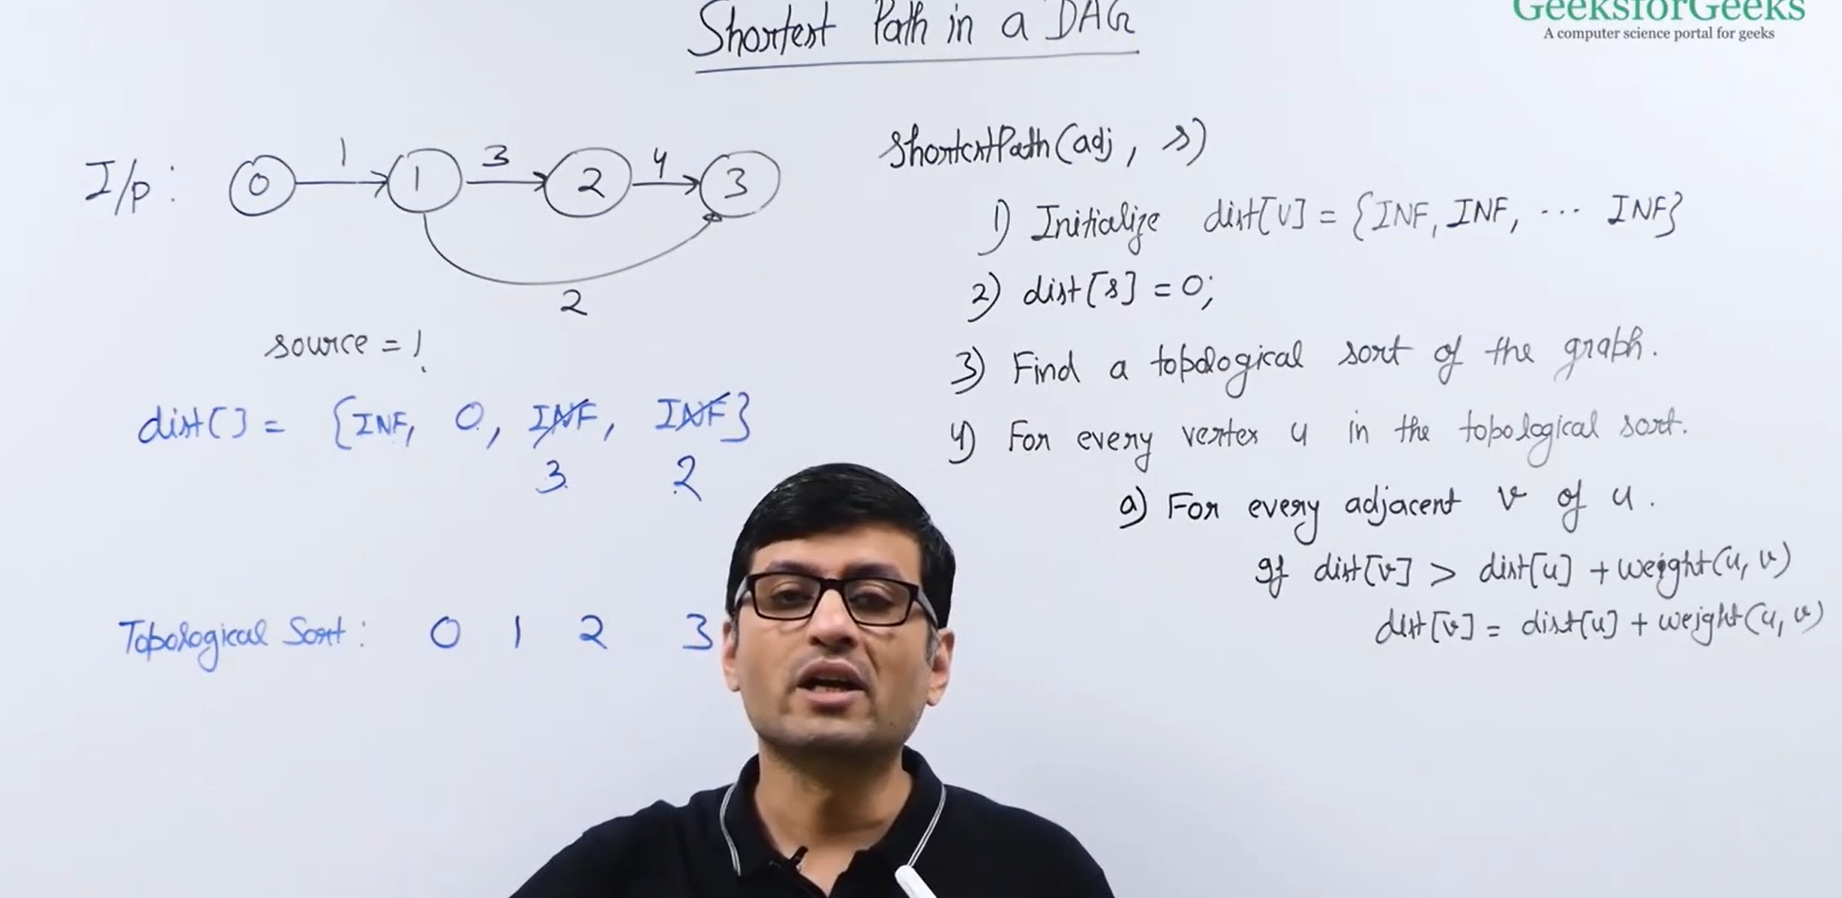 Shortest Path in a DAG
GeeksforGeeks
A computer science portal for geeks
I/p:
0 1 1 3 2 4 3
2
source = 1
dist[] = {INF, 0, INF, INF}
3 2
Topological Sort: 0 1 2 3
ShortestPath(adj, s)
1) Initialize dist[V] = {INF, INF, ... INF}
2) dist[s] = 0;
3) Find a topological sort of the graph.
4) For every vertex u in the topological sort.
a) For every adjacent v of u.
If dist[v] > dist[u] + weight(u, v)
dist[v] = dist[u] + weight(u, v)